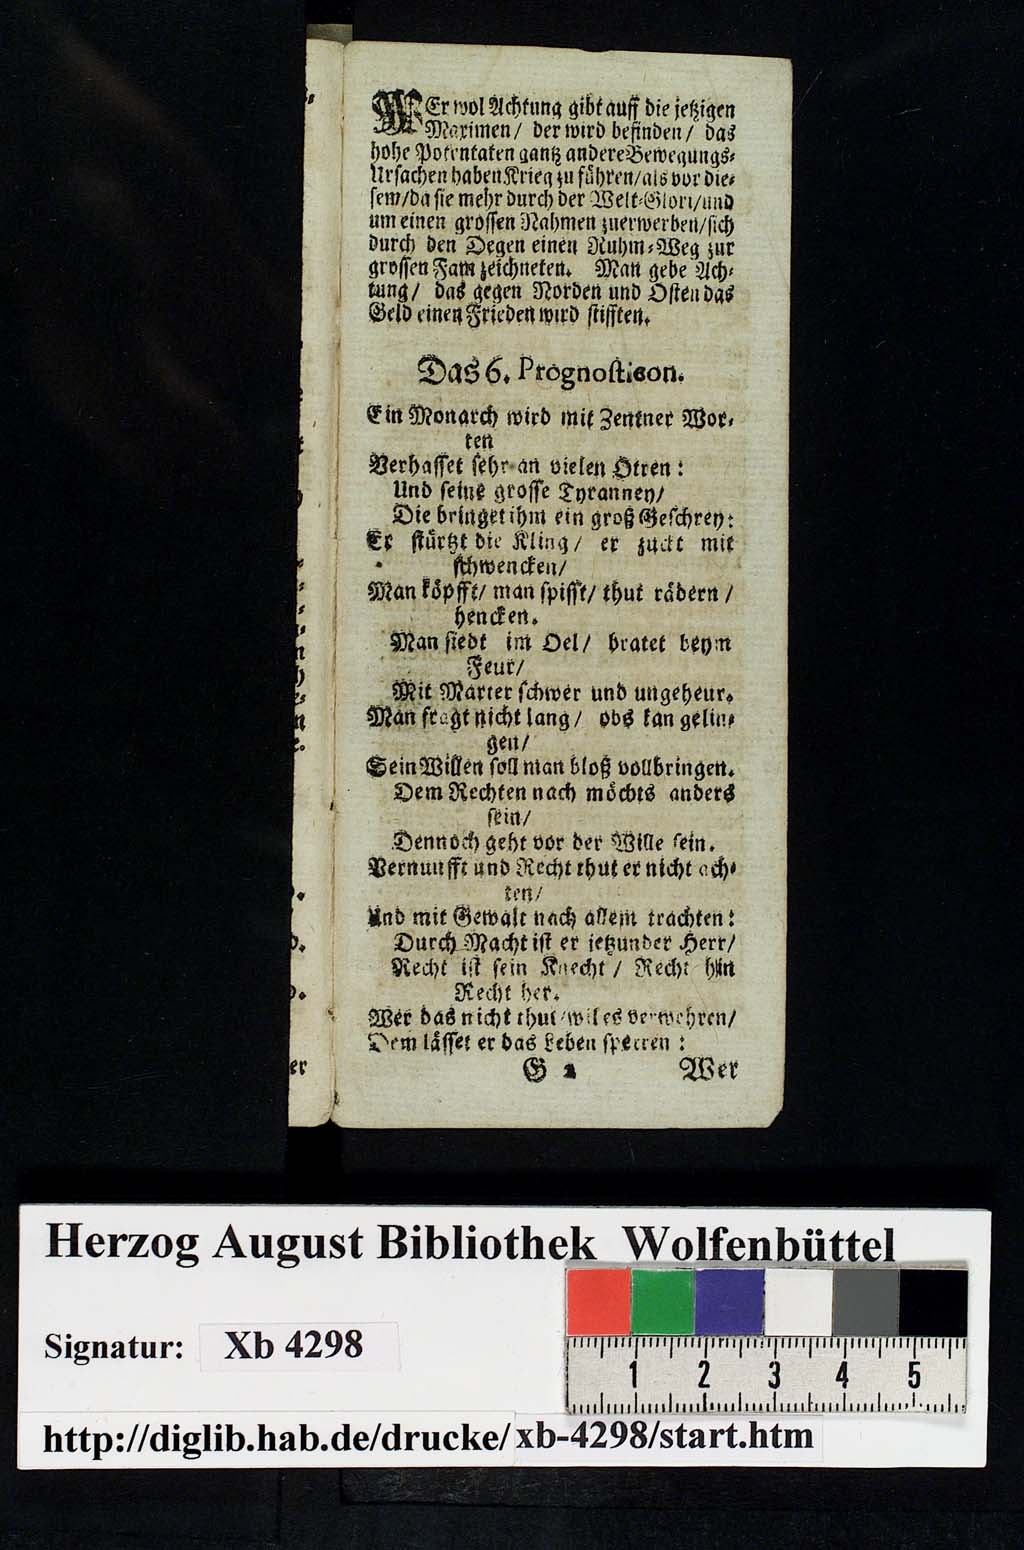 WEr wol Achtung gibt auff die jetzigen
Maximen/ der wird befinden/ das
hohe Potentaten gantz andere Bewegungs-
Ursachen haben Krieg zu führen/als vor die-
sem/da sie mehr durch der Welt-Glori/und
um einen grossen Nahmen zuerwerben/sich
durch den Degen einen Ruhm-Weg zur
grossen Fam zeichneten. Man gebe Ach-
tung/ das gegen Norden und Osten das
Geld einen Frieden wird stifften.
Das 6. Prognosticon.
Ein Monarch wird mit Zentner Wor-
ten
Verhasset sehr an vielen Otren:
Und seine grosse Tyranney/
Die bringet ihm ein groß Geschrey:
Er stürtzt die Kling/ er zuckt mit
schwencken/
Man köpfft/ man spisst/ thut rädern/
hencken.
Man siedt im Oel/ bratet beym
Feur/
Mit Marter schwer und ungeheur.
Man fragt nicht lang/ obs kan gelin-
gen/
Sein Willen soll man bloß vollbringen.
Dem Rechten nach möchts anders
sein/
Dennoch geht vor der Wille sein.
Vernunfft und Recht thut er nicht ach-
ten/
Und mit Gewalt nach allem trachten:
Durch Macht ist er jetzunder Herr/
Recht ist sein Knecht/ Recht hin
Recht her.
Wer das nicht thut/wil es verwehren/
Dem lässet er das Leben sperren:
G 2 Wer
er
Herzog August Bibliothek Wolfenbüttel
Signatur: Xb 4298
1 2 3 4 5
http://diglib.hab.de/drucke/xb-4298/start.htm